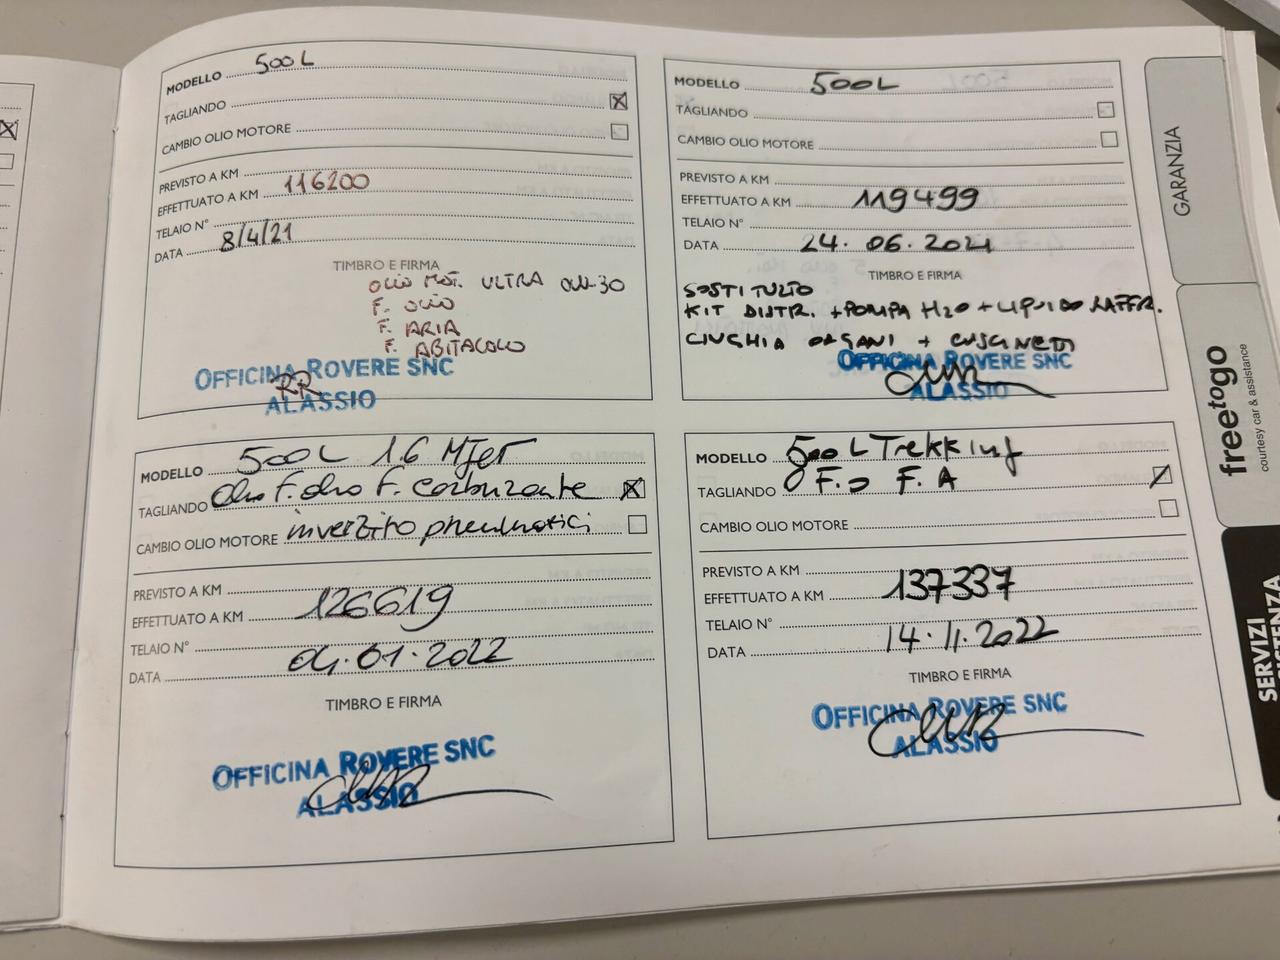 MODELLO 500L
TAGLIANDO
CAMBIO OLIO MOTORE
PREVISTO A KM
EFFETTUATO A KM 116200
TELAIO N°
DATA 8/4/21
TIMBRO E FIRMA
OLIO MOT. ULTRA 0W-30
F. OLIO
F. ARIA
F. ABITACOLO
OFFICINA ROVERE SNC
RR
ALASSIO
MODELLO 500L
TAGLIANDO
CAMBIO OLIO MOTORE
PREVISTO A KM
EFFETTUATO A KM 119499
TELAIO N°
DATA 24.06.2021
TIMBRO E FIRMA
SOSTITUITO
KIT DISTR. + POMPA H2O + LIQUIDO RAFFR.
CINGHIA ORGANI + CUSCINETTI
OFFICINA ROVERE SNC
ALASSIO
MODELLO 500L 1.6 MJet
TAGLIANDO Olio F. olio F. Carburante
CAMBIO OLIO MOTORE invertito pneumatici
PREVISTO A KM
EFFETTUATO A KM 126619
TELAIO N°
DATA 04.01.2022
TIMBRO E FIRMA
OFFICINA ROVERE SNC
ALASSIO
MODELLO 500L Trekking
TAGLIANDO O F.O F.A
CAMBIO OLIO MOTORE
PREVISTO A KM
EFFETTUATO A KM 137337
TELAIO N°
DATA 14.11.2022
TIMBRO E FIRMA
OFFICINA ROVERE SNC
ALASSIO
GARANZIA
freetogo
courtesy car & assistance
SERVIZI